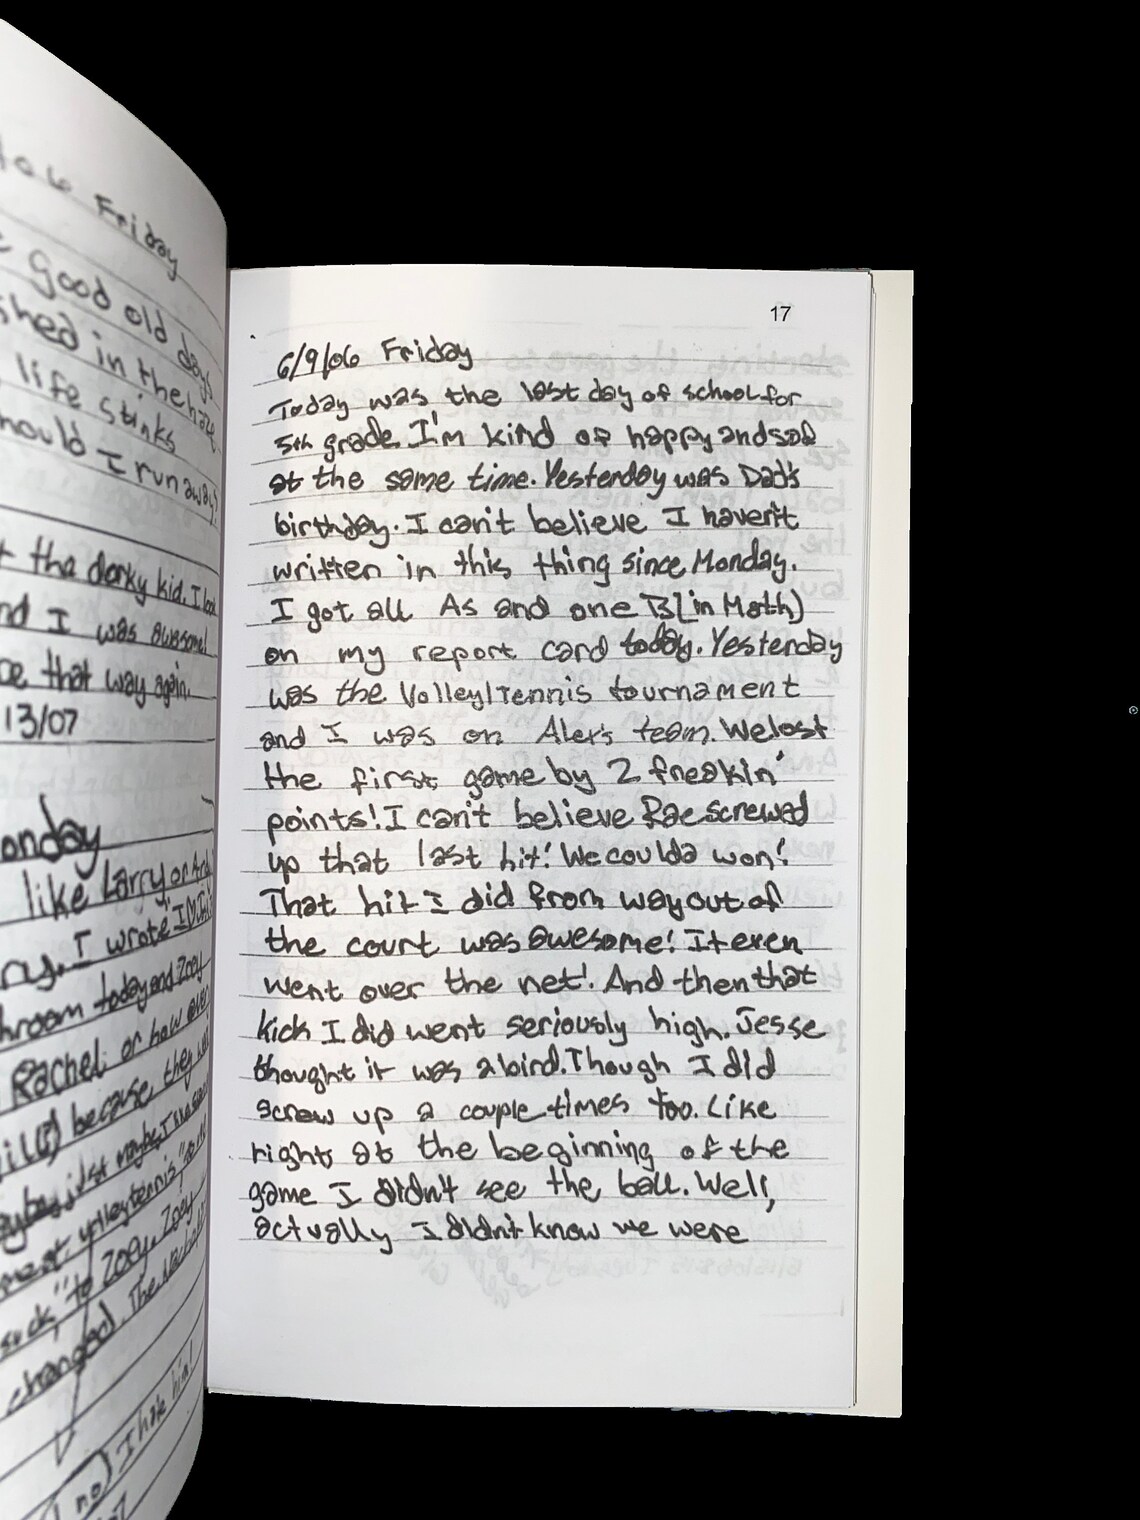 Friday
good old days
shed in the
life stinks
should I run away?
the dorky kid. I look
and I was awesome!
that way again.
13/07
onday
like Larry or
I wrote
today and Zoey
Rachel. or how
because, they
just maybe, I
volleytennis,
suck," to Zoey. Zoey
changed. The
I hate him!
no
17
6/9/06 Friday
Today was the last day of school for
5th grade. I'm kind of happy and sad
at the same time. Yesterday was Dad's
birthday. I can't believe I haven't
written in this thing since Monday.
I got all As and one B(in Math)
on my report card today. Yesterday
was the Volley/Tennis tournament
and I was on Alex's team. We lost
the first game by 2 freakin'
points! I can't believe Rae screwed
up that last hit! We coulda won!
That hit I did from way out of
the court was awesome! It even
went over the net! And then that
kick I did went seriously high. Jesse
thought it was a bird. Though I did
screw up a couple times too. Like
right at the beginning of the
game I didn't see the ball. Well,
actually I didn't know we were